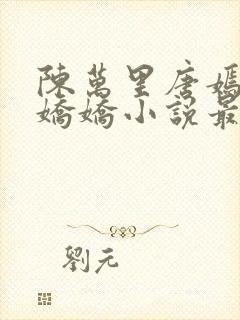 陳萬里唐嫣
嬌嬌小説最
劉元